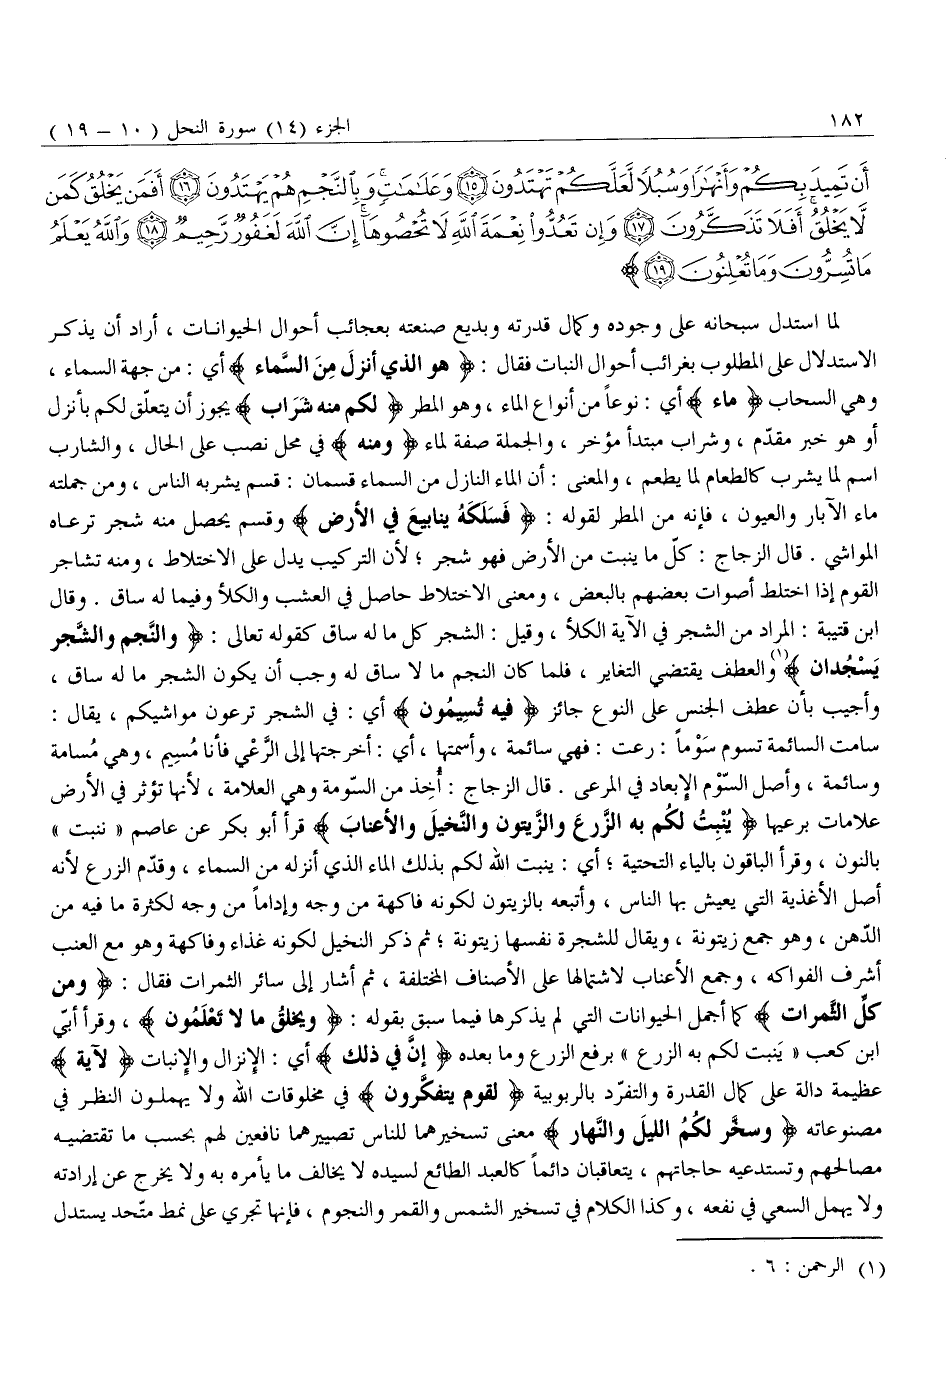 ١٨٢
الجزء (١٤) سورة النحل (١٠ – ١٩)
أَن تَمِيدَ بِكُمْ وَأَنْهَٰرًا وَسُبُلًا لَّعَلَّكُمْ تَهْتَدُونَ ﴿١٥﴾ وَعَلَٰمَٰتٍ ۚ وَبِالنَّجْمِ هُمْ يَهْتَدُونَ ﴿١٦﴾ أَفَمَن يَخْلُقُ كَمَن
لَّا يَخْلُقُ ۗ أَفَلَا تَذَكَّرُونَ ﴿١٧﴾ وَإِن تَعُدُّوا۟ نِعْمَةَ ٱللَّهِ لَا تُحْصُوهَآ ۗ إِنَّ ٱللَّهَ لَغَفُورٌ رَّحِيمٌ ﴿١٨﴾ وَٱللَّهُ يَعْلَمُ
مَا تُسِرُّونَ وَمَا تُعْلِنُونَ ﴿١٩﴾ ﴾
لما استدل سبحانه على وجوده وكمال قدرته وبديع صنعته بعجائب أحوال الحيوانات ، أراد أن يذكر
الاستدلال على المطلوب بغرائب أحوال النبات فقال : ﴿ هو الذي أنزلَ مِنَ السَّماء ﴾ أي : من جهة السماء ،
وهي السحاب ﴿ ماء ﴾ أي : نوعاً من أنواع الماء ، وهو المطر ﴿ لكم منه شَرَاب ﴾ يجوز أن يتعلّق لكم بأنزل
أو هو خبر مقدّم ، وشراب مبتدأ مؤخر ، والجملة صفة لماء ﴿ ومنه ﴾ في محل نصب على الحال ، والشارب
اسم لما يشرب كالطعام لما يطعم ، والمعنى : أن الماء النازل من السماء قسمان : قسم يشربه الناس ، ومن جملته
ماء الآبار والعيون ، فإنه من المطر لقوله : ﴿ فَسَلَكَهُ ينابيعَ في الأرض ﴾ وقسم يحصل منه شجر ترعاه
المواشي . قال الزجاج : كلّ ما ينبت من الأرض فهو شجر ؛ لأن التركيب يدل على الاختلاط ، ومنه تشاجر
القوم إذا اختلط أصوات بعضهم بالبعض ، ومعنى الاختلاط حاصل في العشب والكلأ وفيما له ساق . وقال
ابن قتيبة : المراد من الشجر في الآية الكلأ ، وقيل : الشجر كل ما له ساق كقوله تعالى : ﴿ والنَّجم والشَّجر
يَسْجُدان ﴾(١) والعطف يقتضي التغاير ، فلما كان النجم ما لا ساق له وجب أن يكون الشجر ما له ساق ،
وأجيب بأن عطف الجنس على النوع جائز ﴿ فيه تُسِيمُون ﴾ أي : في الشجر ترعون مواشيكم ، يقال :
سامت السائمة تسوم سَوْماً : رعت : فهي سائمة ، وأسمتها ، أي : أخرجتها إلى الرَّعْي فأنا مُسِيم ، وهي مُسامة
وسائمة ، وأصل السّوْم الإبعاد في المرعى . قال الزجاج : أُخِذ من السّومة وهي العلامة ، لأنها تؤثر في الأرض
علامات برعيها ﴿ يُنْبِتُ لكُم به الزَّرعَ والزَّيتون والنَّخيلَ والأعنابَ ﴾ قرأ أبو بكر عن عاصم « ننبت »
بالنون ، وقرأ الباقون بالياء التحتية ؛ أي : ينبت الله لكم بذلك الماء الذي أنزله من السماء ، وقدّم الزرع لأنه
أصل الأغذية التي يعيش بها الناس ، وأتبعه بالزيتون لكونه فاكهة من وجه وإداماً من وجه لكثرة ما فيه من
الدّهن ، وهو جمع زيتونة ، ويقال للشجرة نفسها زيتونة ؛ ثم ذكر النخيل لكونه غذاء وفاكهة وهو مع العنب
أشرف الفواكه ، وجمع الأعناب لاشتمالها على الأصناف المختلفة ، ثم أشار إلى سائر الثمرات فقال : ﴿ ومن
كلِّ الثَّمرات ﴾ كما أجمل الحيوانات التي لم يذكرها فيما سبق بقوله : ﴿ ويخلقُ ما لا تَعْلَمُون ﴾ ، وقرأ أبيّ
ابن كعب « يَنبت لكم به الزرع » برفع الزرع وما بعده ﴿ إنَّ في ذلك ﴾ أي : الإنزال والإنبات ﴿ لآية ﴾
عظيمة دالة على كمال القدرة والتفرّد بالربوبية ﴿ لقوم يتفكَّرون ﴾ في مخلوقات الله ولا يهملون النظر في
مصنوعاته ﴿ وسخَّر لكُمُ الليل والنَّهار ﴾ معنى تسخيرهما للناس تصييرهما نافعين لهم بحسب ما تقتضيه
مصالحهم وتستدعيه حاجاتهم ، يتعاقبان دائماً كالعبد الطائع لسيده لا يخالف ما يأمره به ولا يخرج عن إرادته
ولا يهمل السعي في نفعه ، وكذا الكلام في تسخير الشمس والقمر والنجوم ، فإنها تجري على نمط متّحد يستدل
(١) الرحمن : ٦ .